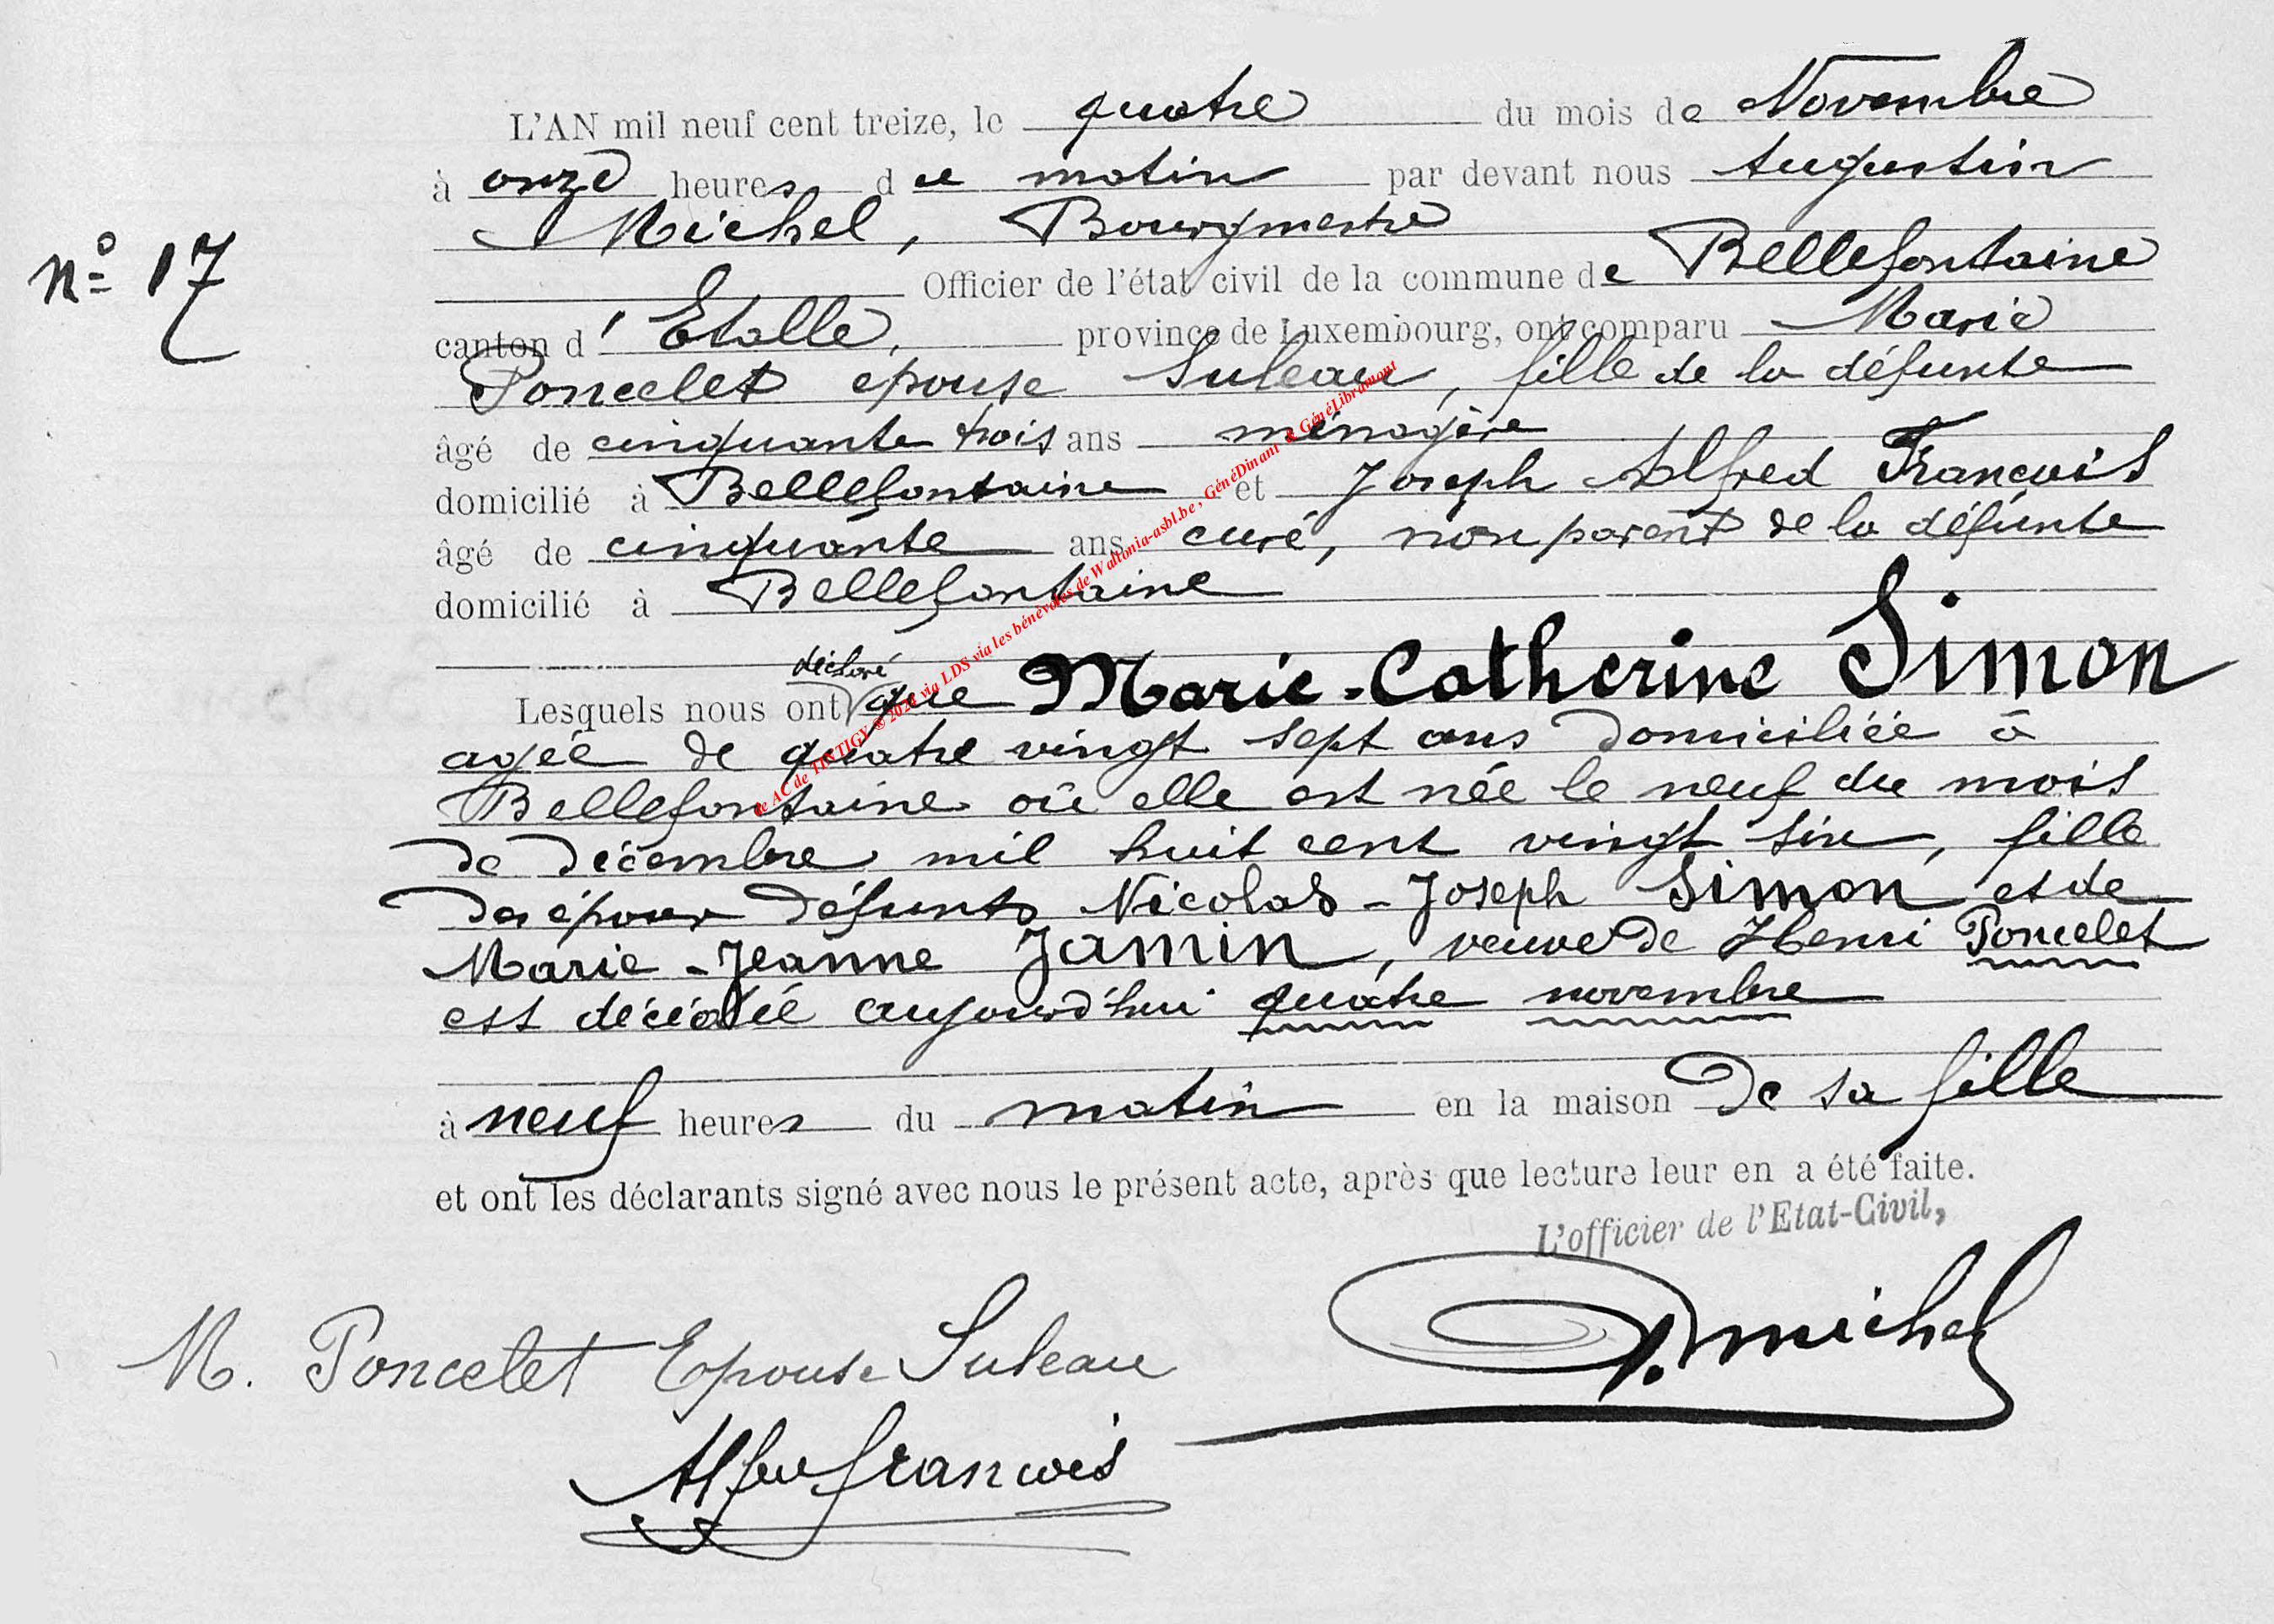 L'AN mil neuf cent treize, le quatre du mois de Novembre
à onze heures du matin par devant nous Augustin
Michel, Bourgmestre
N° 17
Officier de l'état civil de la commune de Bellefontaine
canton d'Etalle, province de Luxembourg, ont comparu Marie
Poncelet epouse Suleau, fille de la défunte
âgé de cinquante trois ans ménagère
domicilié à Bellefontaine et Joseph Alfred François
âgé de cinquante ans curé, non parent de la défunte
domicilié à Bellefontaine
déclaré
Lesquels nous ont que Marie-Catherine Simon
agée de quatre vingt sept ans domiciliée à
Bellefontaine où elle est née le neuf du mois
de décembre mil huit cent vingt six, fille
des époux défunts Nicolas-Joseph Simon et de
Marie-Jeanne Jamin, veuve de Henri Poncelet
est décédée aujourd'hui quatre novembre
à neuf heures du matin en la maison de sa fille
et ont les déclarants signé avec nous le présent acte, après que lecture leur en a été faite.
L'officier de l'Etat-Civil,
M. Poncelet Epouse Suleau
michel
Alf françois
de AC de TINTIGY © 2023 via LDS via les bénévoles de Wallonia-asbl.be, GénéDinant & GénéLibramont